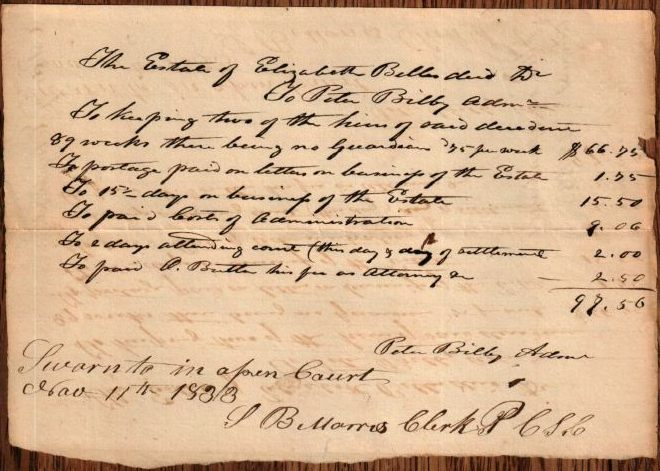 The Estate of Elizabeth Billes decd Dr
To Peter Bilby Admr
To keeping two of the heirs of said decedent
89 weeks there being no Guardian 75 per week $66.75
To postage paid on letters on business of the Estate 1.75
To 15½ days on business of the Estate 15.50
To paid Costs of Administration 9.06
To 2 days attending court (this day & day of settlement 2.00
To paid O. Butler his fee as Attorney &c 2.50
97.56
Peter Bilby Admr
Sworn to in open Court
Nov 11th 1833
S B Morris Clerk P C